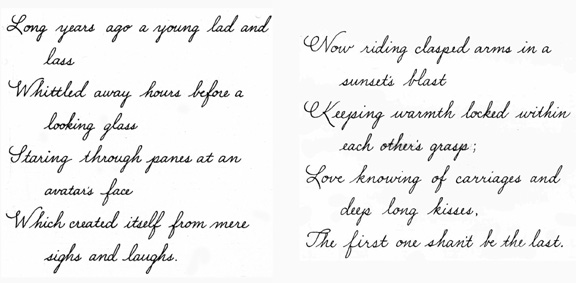 Long years ago a young lad and
lass
Whittled away hours before a
looking glass
Staring through panes at an
avatar's face
Which created itself from mere
sighs and laughs.
Now riding clasped arms in a
sunset's blast
Keeping warmth locked within
each other's grasp;
Love knowing of carriages and
deep long kisses,
The first one shan't be the last.